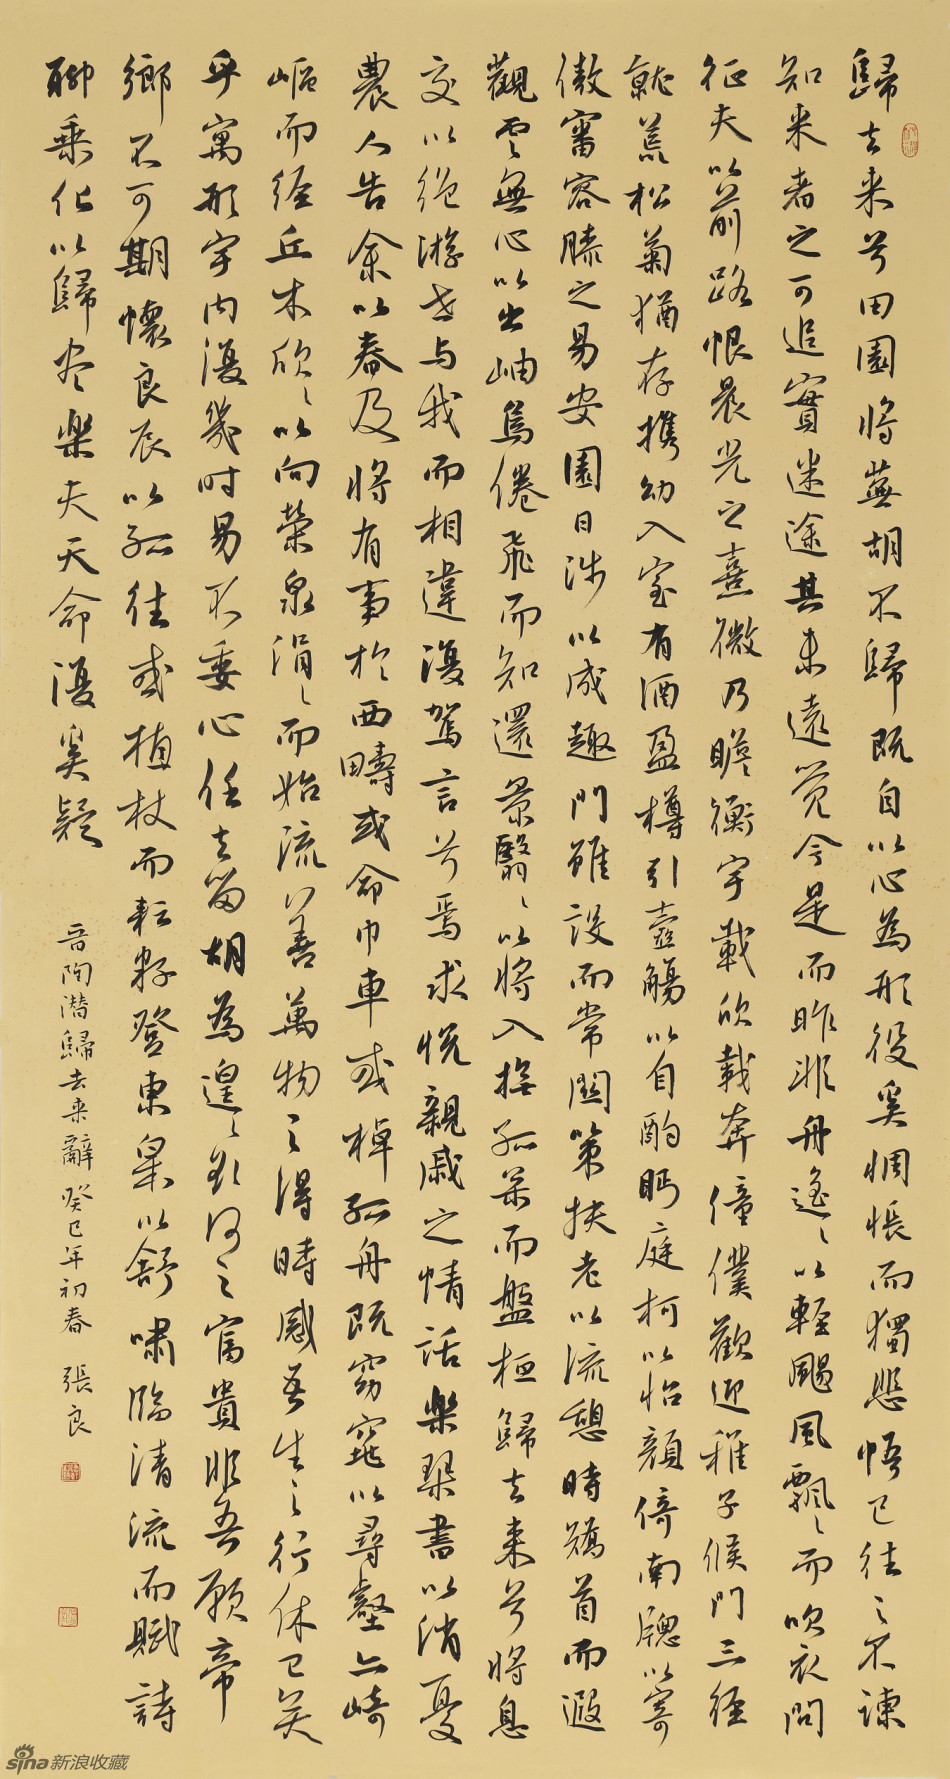 歸去来兮田園将蕪胡不歸既自以心為形役奚惆悵而獨悲悟已往之不諫
知来者之可追實迷途其未遠覚今是而昨非舟遙〻以輕颺風飄〻而吹衣問
征夫以前路恨晨光之熹微乃瞻衡宇載欣載奔僮僕歡迎稚子候門三径
就荒松菊猶存携幼入室有酒盈樽引壺觴以自酌眄庭柯以怡顏倚南牕以寄
傲審容膝之易安園日涉以成趣門雖設而常関策扶老以流憩時矯首而遐
觀雲無心以出岫鳥倦飛而知還景翳〻以将入撫孤松而盤桓歸去来兮将息
交以绝游世与我而相違復駕言兮焉求悦親戚之情話樂琴書以消憂
農人告余以春及将有事於西疇或命巾車或棹孤舟既窈窕以尋壑亦崎
嶇而经丘木欣〻以向榮泉涓〻而始流善萬物之得時感吾生之行休已矣
乎寓形宇内復幾时曷不委心任去留胡為遑〻欲何之富貴非吾願帝
鄉不可期懷良辰以孤往或植杖而耘耔登東皋以舒嘯臨清流而賦詩
聊乘化以歸尽樂夫天命復奚疑
晋陶潜歸去来辭 癸巳年初春 張良
sina新浪收藏